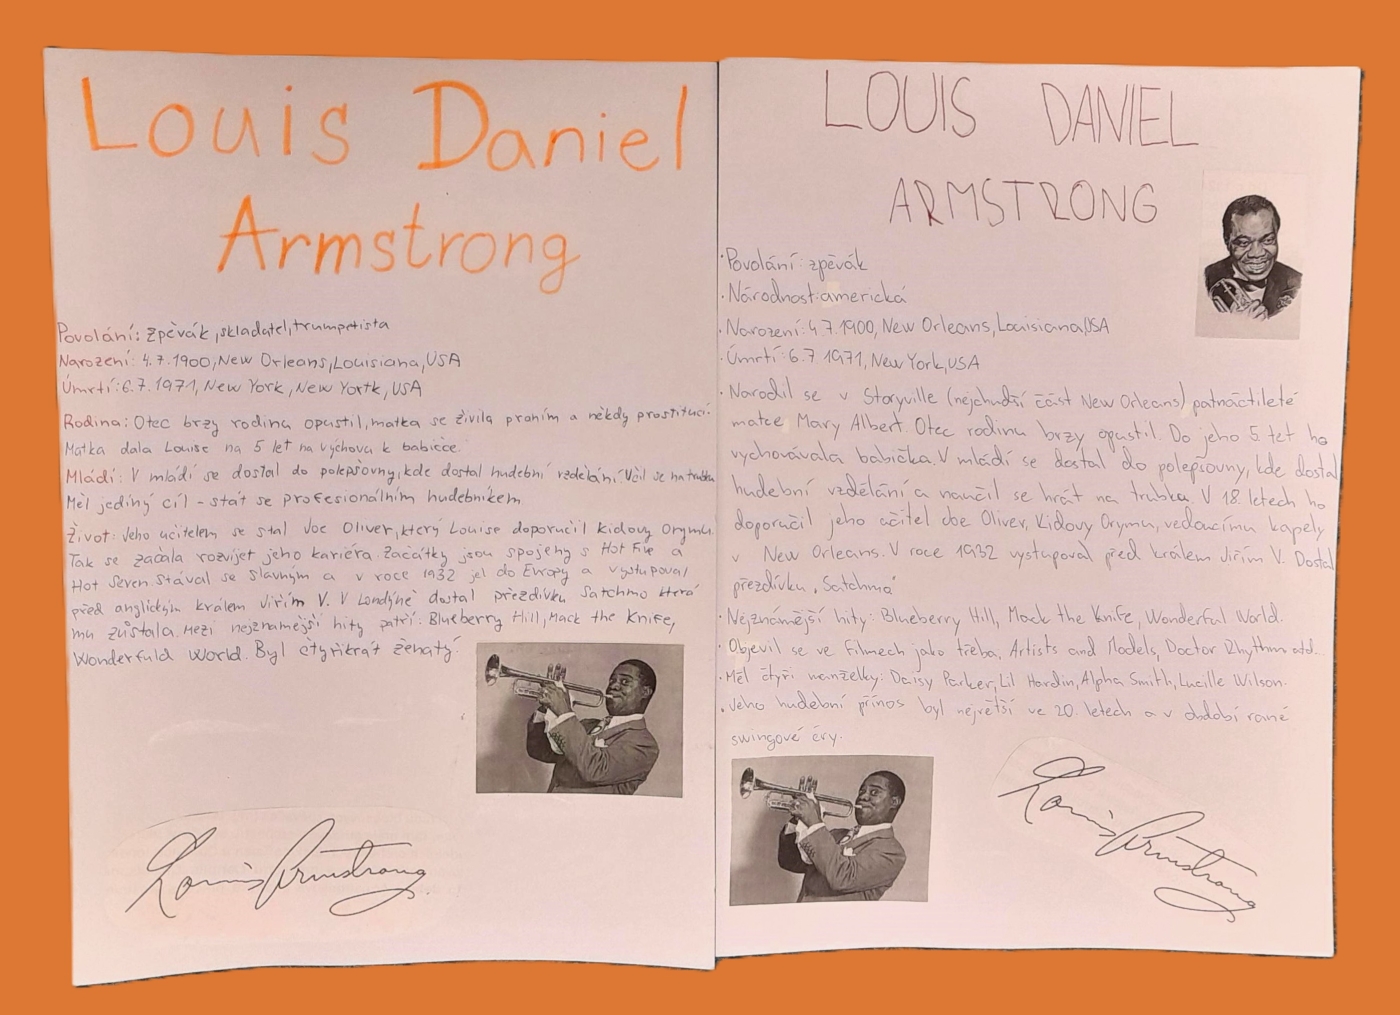 Louis Daniel
Armstrong
Povolání: Zpěvák, skladatel, trumpetista
Narození: 4.7.1900, New Orleans, Louisiana, USA
Úmrtí: 6.7.1971, New York, New Yortk, USA
Rodina: Otec brzy rodinu opustil, matka se živila praním a někdy prostitucí.
Matka dala Louise na 5 let na výchovu k babičce.
Mládí: V mládí se dostal do polepšovny, kde dostal hudební vzdělání. Učil se na trubku
Měl jediný cíl - stát se profesionálním hudebníkem
Život: Jeho učitelem se stal Joe Oliver, který Louise doporučil kidovy Orymu.
Tak se začala rozvíjet jeho kariéra. Začátky jsou spojeny s Hot Five a
Hot Seven. Stával se slavným a v roce 1932 jel do Evropy a vystupoval
před anglickým králem Jiřím V. V Londýně dostal přezdívku Satchmo která
mu zůstala. Mezi nejznamější hity patří: Blueberry Hill, Mack the Knife,
Wonderfuld World. Byl čtyřikrát ženatý.
Louis Armstrong
LOUIS DANIEL
ARMSTRONG
· Povolání: zpěvák
· Národnost: americká
· Narození: 4.7.1900, New Orleans, Louisiana, USA
· Úmrtí: 6.7 1971, New York, USA
· Narodil se v Storyville (nejchudší část New Orleans) patnáctileté
matce Mary Albert. Otec rodinu brzy opustil. Do jeho 5 let ho
vychovávala babička. V mládí se dostal do polepšovny, kde dostal
hudební vzdělání a naučil se hrát na trubku. V 18 letech ho
doporučil jeho učitel Joe Oliver, Kidovy Orymu, vedoucímu kapely
v New Orleans. V roce 1932 vystupoval před králem Jiřím V. Dostal
přezdívku „Satchmo"
· Nejznámější hity: Blueberry Hill, Mack the Knife, Wonderful World.
· Objevil se ve filmech jako třeba, Artists and Models, Doctor Rhythm atd...
· Měl čtyři manželky: Daisy Parker, Lil Hardin, Alpha Smith, Lucille Wilson.
· Jeho hudební přínos byl největší ve 20. letech a v období rané
swingové éry.
Louis Armstrong